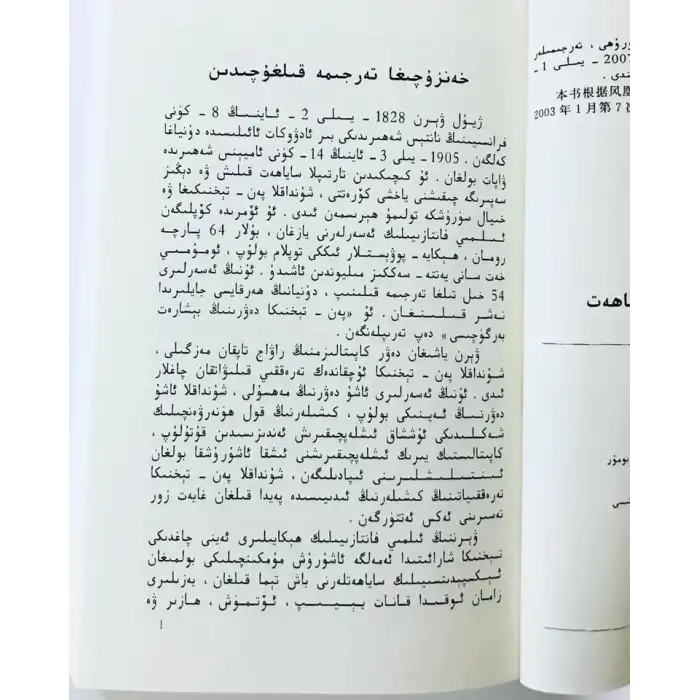 خەنزۇچىغا تەرجىمە قىلغۇچىدىن
ژيۇل ۋېرن 1828 - يىلى 2 - ئاينىڭ 8 - كۈنى
فرانسىيىنىڭ نانتېس شەھىرىدىكى بىر ئادۋوكات ئائىلىسىدە دۇنياغا
كەلگەن . 1905 - يىلى 3 - ئاينىڭ 14 - كۈنى ئاميېنس شەھىرىدە
ۋاپات بولغان . ئۇ كىچىكىدىن تارتىپلا ساياھەت قىلىش ۋە دېڭىز
سەپىرىگە چىقىشنى ياخشى كۆرەتتى ، شۇنداقلا پەن - تېخنىكىغا ۋە
خىيال سۈرۈشكە تولىمۇ ھېرىسمەن ئىدى . ئۇ ئۆمرىدە كۆپلىگەن
ئىلمىي فانتازىيىلىك ئەسەرلەرنى يازغان ، بۇلار 64 پارچە
رومان ، ھېكايە - پوۋېستلار ئىككى توپلام بولۇپ ، ئومۇمىي
خەت سانى يەتتە - سەككىز مىليوندىن ئاشىدۇ . ئۇنىڭ ئەسەرلىرى
54 خىل تىلغا تەرجىمە قىلىنىپ ، دۇنيانىڭ ھەرقايسى جايلىرىدا
نەشىر قىلىنغان . ئۇ «پەن - تېخنىكا دەۋرىنىڭ بېشارەت
بەرگۈچىسى» دەپ تەرىپلەنگەن .
ۋېرن ياشىغان دەۋر كاپىتالىزمنىڭ راۋاج تاپقان مەزگىلى ،
شۇنداقلا پەن - تېخنىكا ئۇچقاندەك تەرەققىي قىلىۋاتقان چاغلار
ئىدى . ئۇنىڭ ئەسەرلىرى ئاشۇ دەۋرنىڭ مەھسۇلى ، شۇنداقلا ئاشۇ
دەۋرنىڭ ئەينىكى بولۇپ ، كىشىلەرنىڭ قول ھۈنەرۋەنچىلىك
شەكلىدىكى ئۇششاق ئىشلەپچىقىرىش ئەندىزىسىدىن قۇتۇلۇپ ،
كاپىتالىستىك يىرىك ئىشلەپچىقىرىشنى ئىشقا ئاشۇرۇشقا بولغان
ئىنتىلىشلىرىنى ئىپادىلىگەن ، شۇنداقلا پەن - تېخنىكا
تەرەققىياتىنىڭ كىشىلەرنىڭ ئىدىيىسىدە پەيدا قىلغان غايەت زور
تەسىرىنى ئەكس ئەتتۈرگەن .
ۋېرننىڭ ئىلمىي فانتازىيىلىك ھېكايىلىرى ئەينى چاغدىكى
تېخنىكا شارائىتىدا ئەمەلگە ئاشۇرۇش مۇمكىنچىلىكى بولمىغان
ئېكسپېدىتسىيىلىك ساياھەتلەرنى باش تېما قىلغان ، بەزىلىرى
زامان ئوقىدا قانات يېيىپ ، ئۆتمۈش ، ھازىر ۋە
1
ۇرۇھى ، تەرجىمىلەر
2007 - يىلى 1 -
ندى .
本书根据凤凰
2003 年 1 月第 7 次
ياھەت
بومۇر